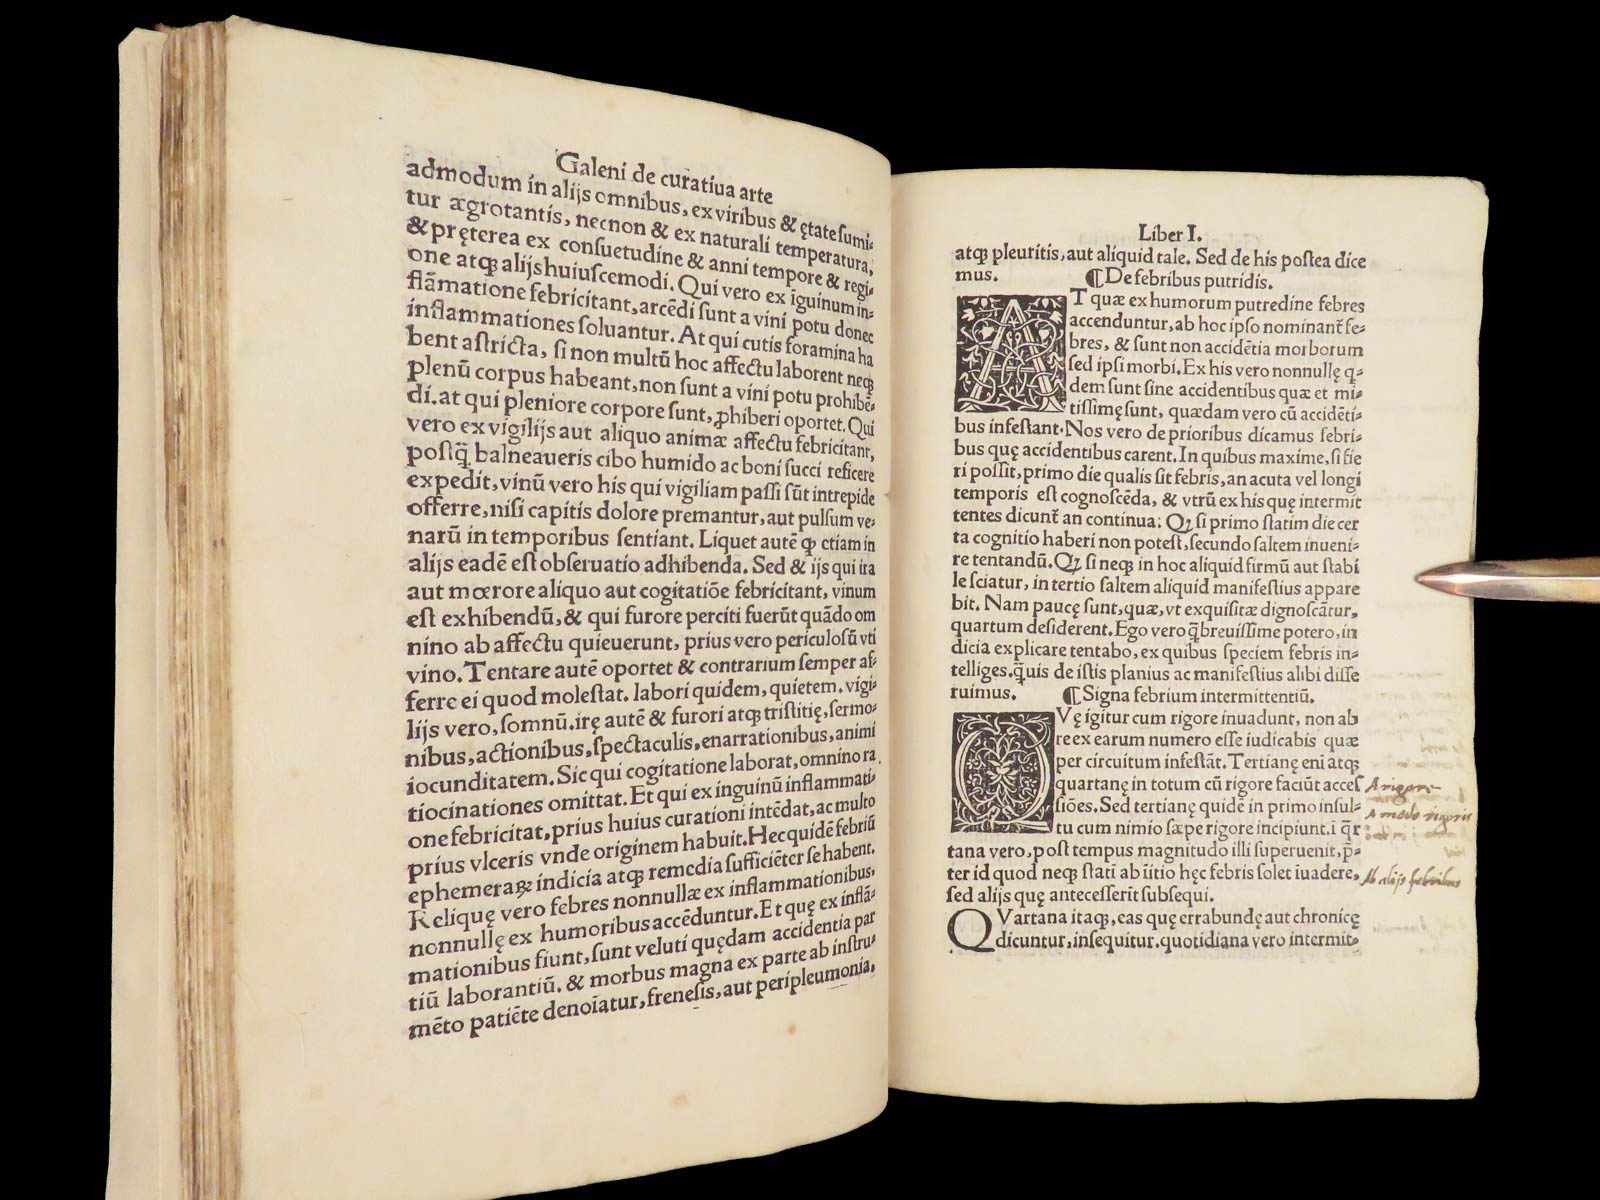 Galeni de curatiua arte
admodum in alijs omnibus, ex viribus & ętate sumi-
tur ægrotantis, necnon & ex naturali temperatura,
& pręterea ex consuetudine & anni tempore & regi-
one atq; alijs huiuscemodi. Qui vero ex iguinum in-
flāmatione febricitant, arcēdi sunt a vini potu donec
inflammationes soluantur. At qui cutis foramina ha
bent astricta, si non multū hoc affectu laborent neq;
plenū corpus habeant, non sunt a vini potu prohibē-
di. at qui pleniore corpore sunt, ꝓhiberi oportet. Qui
vero ex vigilijs aut aliquo animæ affectu febricitant,
postq̄ balneaueris cibo humido ac boni succi reficere
expedit, vinū vero his qui vigiliam passi sūt intrepide
offerre, nisi capitis dolore premantur, aut pulsum ve-
narū in temporibus sentiant. Liquet autē ꝙ etiam in
alijs eadē est obseruatio adhibenda. Sed & ijs qui ira
aut mœrore aliquo aut cogitatiōe febricitant, vinum
est exhibendū, & qui furore perciti fuerūt quādo om
nino ab affectu quieuerunt, prius vero periculosū vti
vino. Tentare autē oportet & contrarium semper af-
ferre ei quod molestat. labori quidem, quietem. vigi-
lijs vero, somnū. irę autē & furori atq; tristitię, sermo-
nibus, actionibus, spectaculis, enarrationibus, animi
iocunditatem. Sic qui cogitatione laborat, omnino ra
tiocinationes omittat. Et qui ex inguinū inflammati-
one febricitat, prius huius curationi intēdat, ac multo
prius vlceris vnde originem habuit. Hec quidē febriū
ephemeraꝝ indicia atq; remedia sufficiēter se habent.
Reliquę vero febres nonnullæ ex inflammationibus,
nonnullę ex humoribus accēduntur. Et quę ex inflā-
mationibus fiunt, sunt veluti quędam accidentia par
tiū laborantiū. & morbus magna ex parte ab instru-
mēto patiēte denoīatur, frenesis, aut peripleumonia,
Liber I.
atq; pleuritis, aut aliquid tale. Sed de his postea dice
mus. ¶ De febribus putridis.
AT quæ ex humorum putredine febres
accenduntur, ab hoc ipso nominant̄ fe-
bres, & sunt non accidētia morborum
sed ipsi morbi. Ex his vero nonnullę q-
dem sunt sine accidentibus quæ et mi-
tissimę sunt, quædam vero cū accidēti-
bus infestant. Nos vero de prioribus dicamus febri-
bus quę accidentibus carent. In quibus maxime, si fie
ri possit, primo die qualis sit febris, an acuta vel longi
temporis est cognoscēda, & vtrū ex his quę intermit
tentes dicunt̄ an continua: Qꝫ si primo statim die cer
ta cognitio haberi non potest, secundo saltem inueni-
re tentandū. Qꝫ si neq; in hoc aliquid firmū aut stabi
le sciatur, in tertio saltem aliquid manifestius appare
bit. Nam paucę sunt, quæ, vt exquisitæ dignoscātur,
quartum desiderent. Ego vero q̄breuissime potero, in
dicia explicare tentabo, ex quibus speciem febris in-
telliges. q̄uis de istis planius ac manifestius alibi disse
ruimus. ¶ Signa febrium intermittentiū.
QVę igitur cum rigore inuadunt, non ab
re ex earum numero esse iudicabis quæ
per circuitum infestāt. Tertianę eni atq;
quartanę in totum cū rigore faciūt acces
siōes. Sed tertianę quidē in primo insul-
tu cum nimio sæpe rigore incipiunt. ī q̄r
tana vero, post tempus magnitudo illi superuenit, p̄-
ter id quod neq; stati ab ītio hęc febris solet iuadere,
sed alijs quę antecesserīt subsequi.
QVartana itaq;, eas quę errabundę aut chronicę
dicuntur, insequitur. quotidiana vero intermit-
A rigore
A modo rigoris
Ab alijs febribus